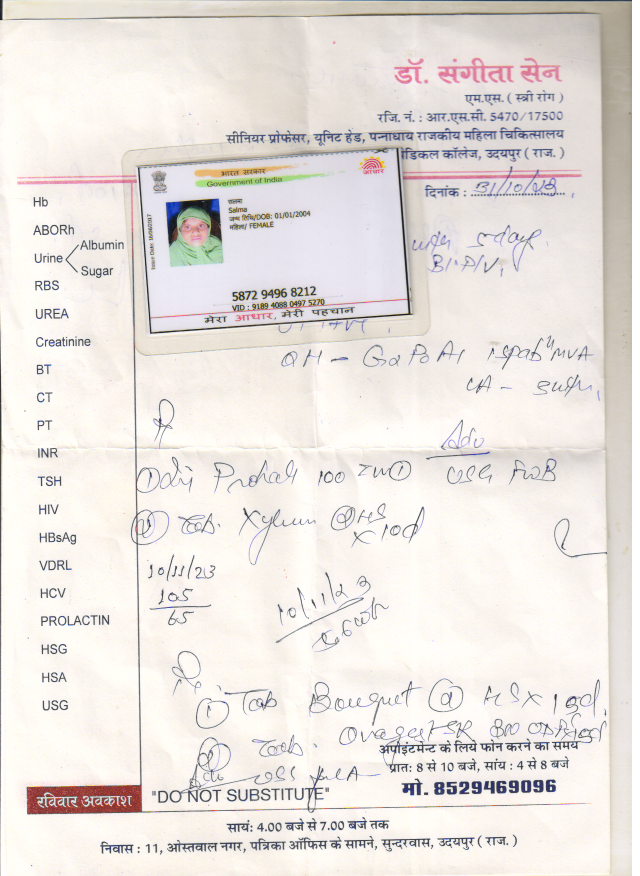 डॉ. संगीता सेन
एम.एस. ( स्त्री रोग )
रजि. नं. : आर.एस.सी. 5470/17500
सीनियर प्रोफेसर, यूनिट हेड, पन्नाधाय राजकीय महिला चिकित्सालय
डिकल कॉलेज, उदयपुर ( राज. )
दिनांक : 31/10/23
भारत सरकार
Government of India
आधार
Issue Date: 16/06/2017
सलमा
Salma
जन्म तिथि/DOB: 01/01/2004
महिला/ FEMALE
5872 9496 8212
VID : 9189 4088 0497 5270
मेरा आधार, मेरी पहचान
Hb
ABORh
Urine
Albumin
Sugar
RBS
UREA
Creatinine
BT
CT
PT
INR
TSH
HIV
HBsAg
VDRL
HCV
PROLACTIN
HSG
HSA
USG
5 days
OH - G2P0A1
MVA
LA -
Adv
USG FWB
100
Tab.
HS
x 10d
10/11/23
105
65
10/11/23
Tab Bouquet HS x
Tab.
SR
Adv
USG
अपॉइंटमेन्ट के लिये फोन करने का समय
प्रातः 8 से 10 बजे, सांय : 4 से 8 बजे
मो. 8529469096
रविवार अवकाश
"DO NOT SUBSTITUTE"
सायं: 4.00 बजे से 7.00 बजे तक
निवास : 11, ओस्तवाल नगर, पत्रिका ऑफिस के सामने, सुन्दरवास, उदयपुर ( राज. )